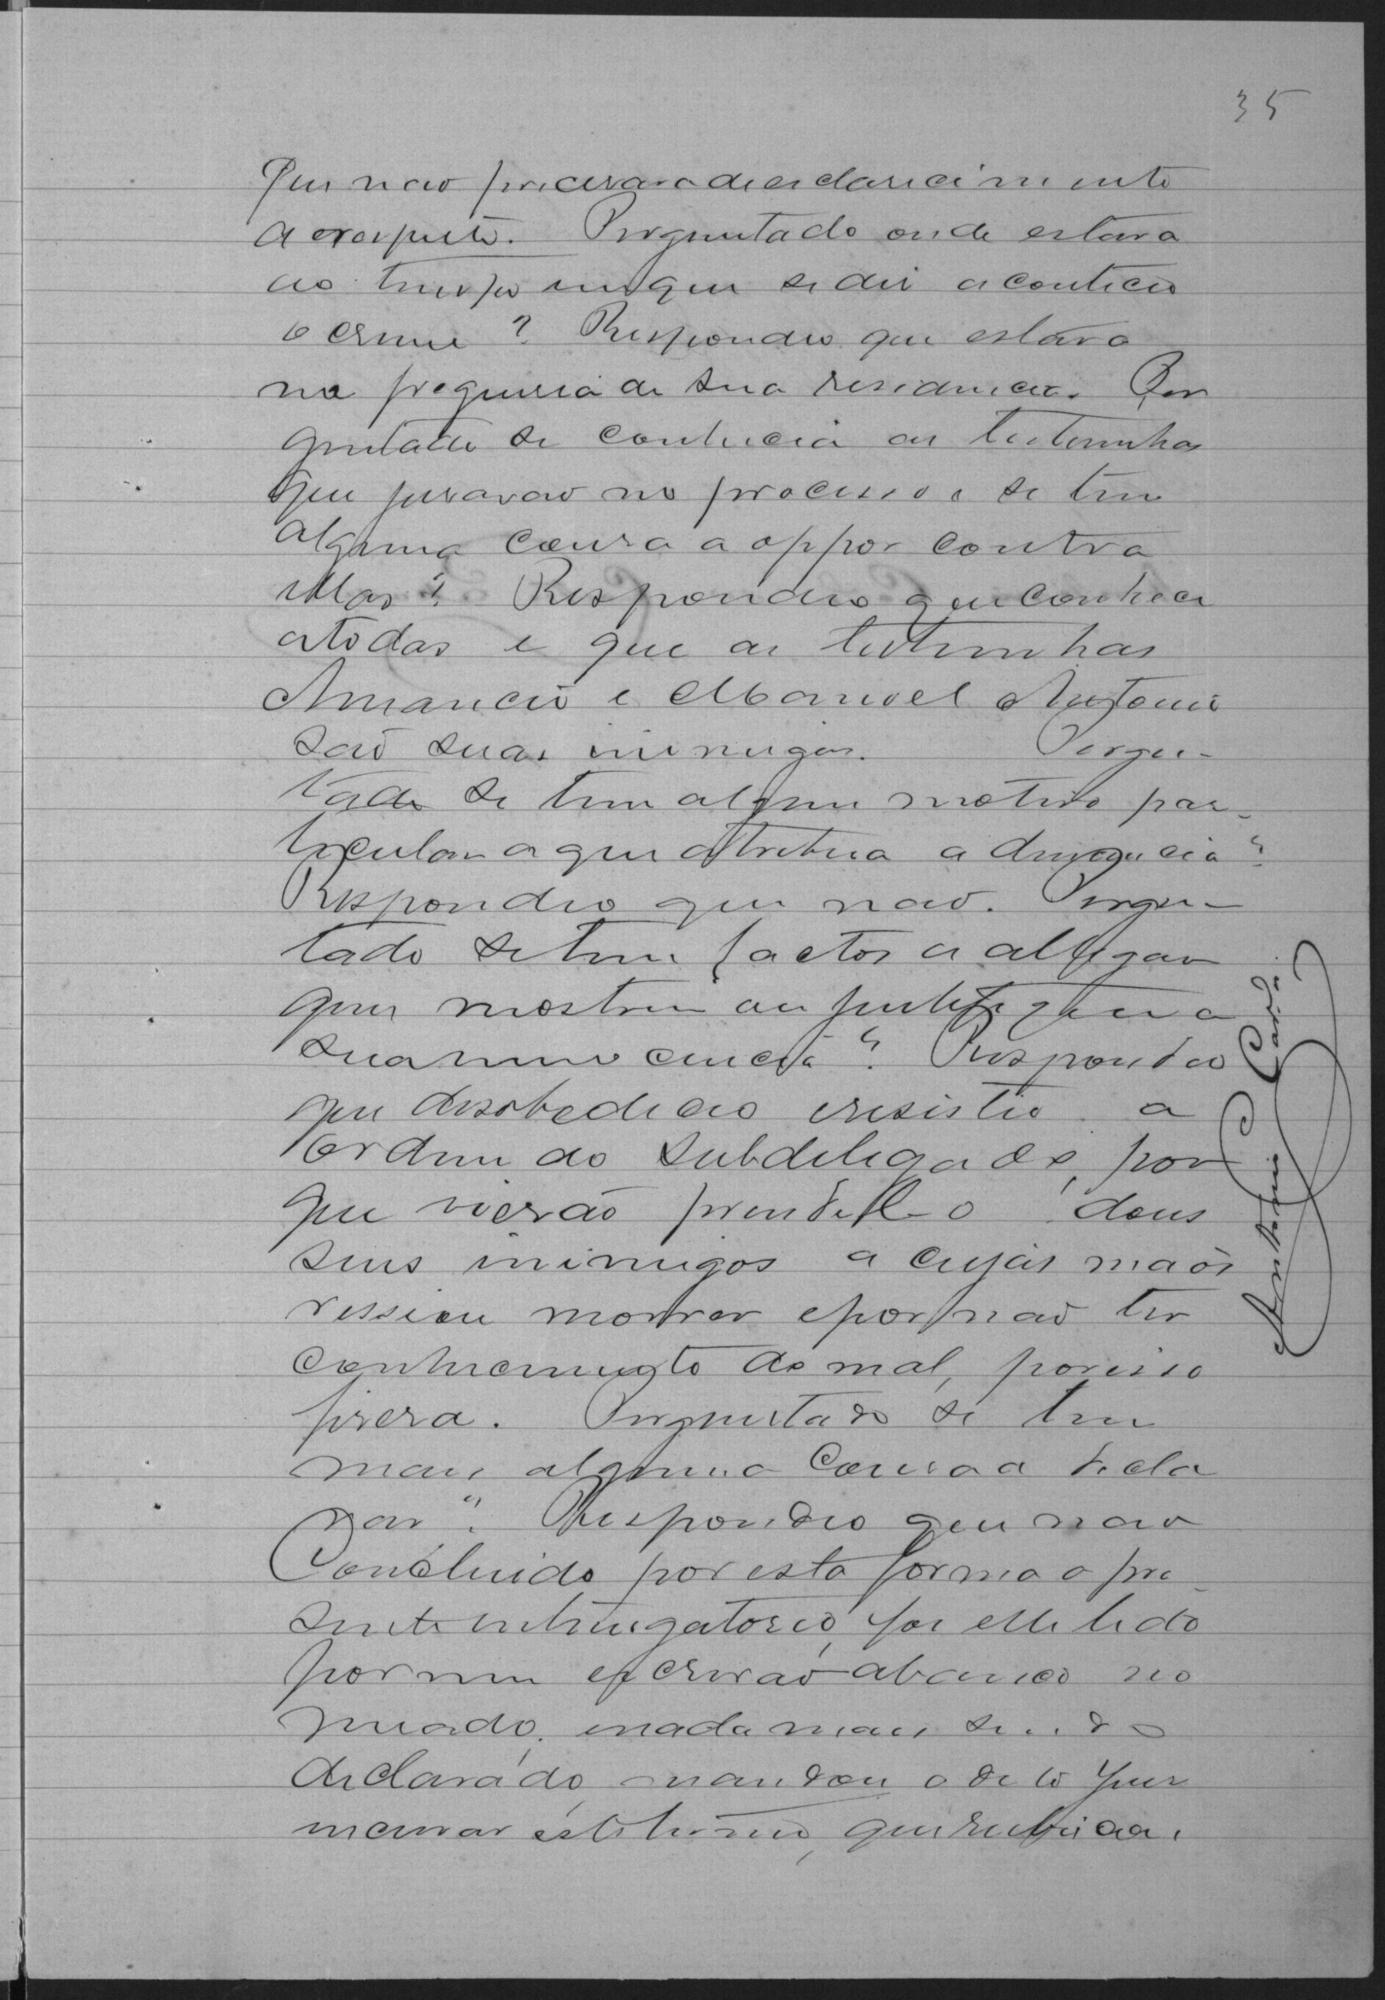 35
Que não precisava de esclarecimento
a respeito. Perguntado onde estava
ao tempo em que se diz aconteceo
o crime? Respondeo que estava
na freguesia de sua residencia. Per
guntado se conhecia as testemunhas
que juravão no processo e se tem
alguma cousa a oppor contra
ellas? Respondeo que conhece
a todas e que as testemunhas
Amancio e Manoel Antonio
são suas inimigas. Pergun-
tado se tem algum motivo par-
ticular a que attribua a denuncia?
Respondeo que não. Pergun-
tado se tem factos a allegar
que mostrem ou justifiquem a
sua innocencia? Respondeo
que desobedeceo e resistio a
ordem do subdelegado, por
que vierão prendel-o dous
seus inimigos a cujas mãos
morrer e por não ter
conhecimento do mal, por isso
fizera. Perguntado se tem
mais alguma cousa a decla
rar? Respondeo que não
Concluido por esta forma o pre-
sente interrogatorio, foi elle lido
por mim escrivão abaixo no
meado, e nada mais sendo
declarado mandou o dito Juiz
lavrar este termo, que rubrica.
Antonio